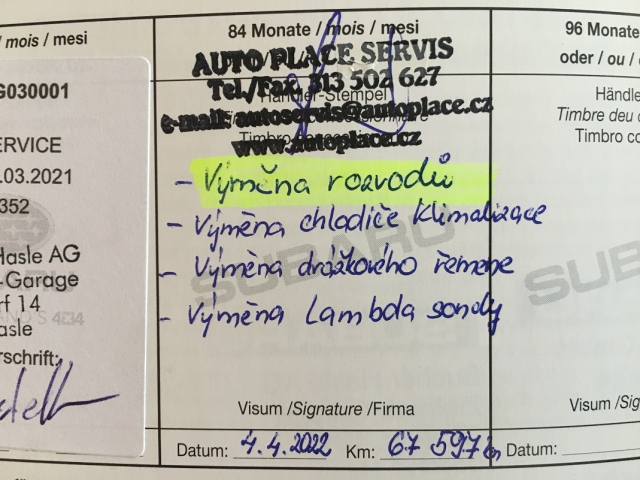 / mois / mesi
G030001
ERVICE
.03.2021
352
Hasle AG
-Garage
rf 14
asle
erschrift:
84 Monate / mois / mesi
AUTO PLACE SERVIS
Tel./Fax. 313 502 627
Händler-Stempel
e-mail: autoservis@autoplace.cz
Timbro
www.autoplace.cz
- Výměna rozvodů
- Výměna chladiče klimalizace
- Výměna drážkového řemene
- Výměna Lambda sondy
SUBARU
Visum /Signature /Firma
Datum: 4.4.2022 Km: 67 597
96 Monate
oder / ou /
Händle
Timbre deu
Timbro co
SUBA
Visum /Sig
Datum: